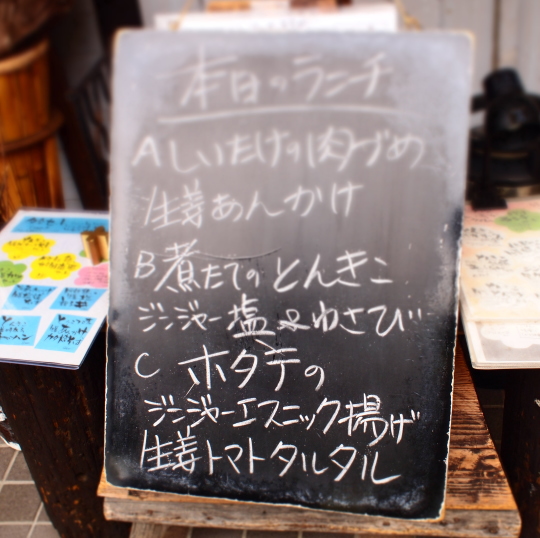 本日のランチ
Aしいたけの肉づめ
生姜あんかけ
B煮たてのとんきこ
ジンジャー塩&わさび
C ホタテの
ジンジャーエスニック揚げ
生姜トマトタルタル